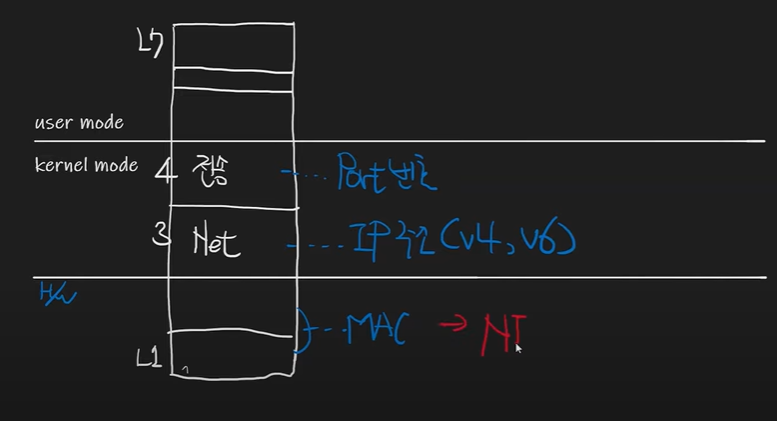 L7
user mode
kernel mode
4 전송 Port 번호
3 Net IP 주소 (v4, v6)
H/W
MAC → NI
L1